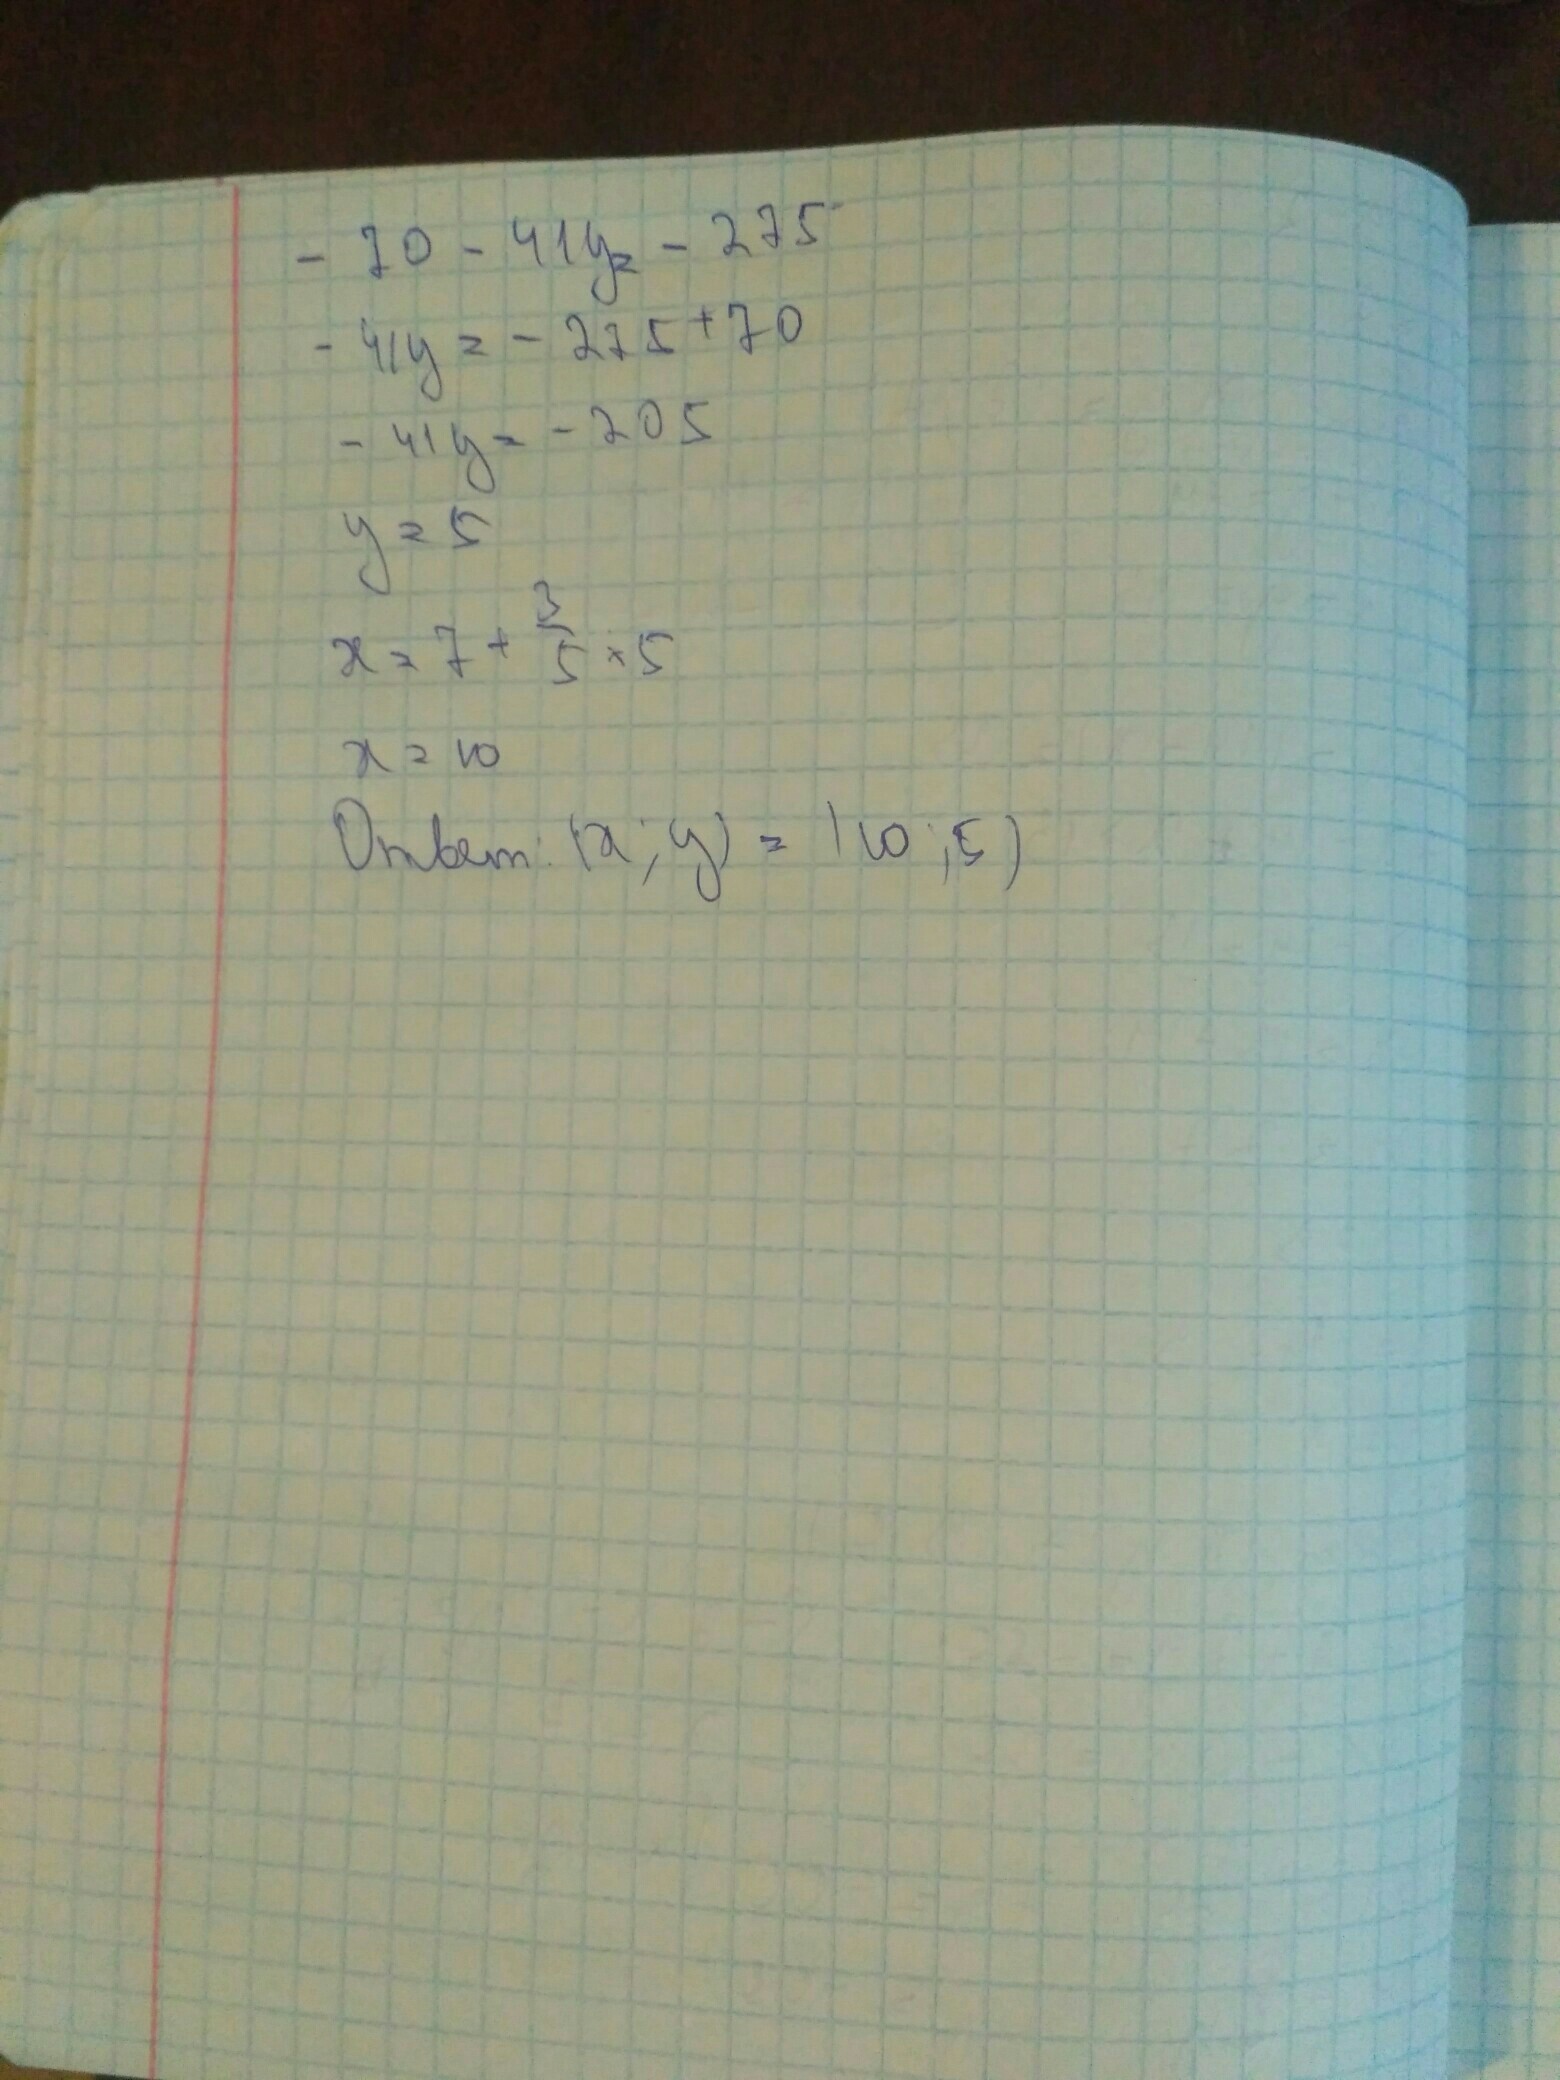 - 70 - 41y = - 275
- 41y = - 275 + 70
- 41y = - 205
y = 5
x = 7 + 3/5 × 5
x = 10
Ответ: (x; y) = (10; 5)